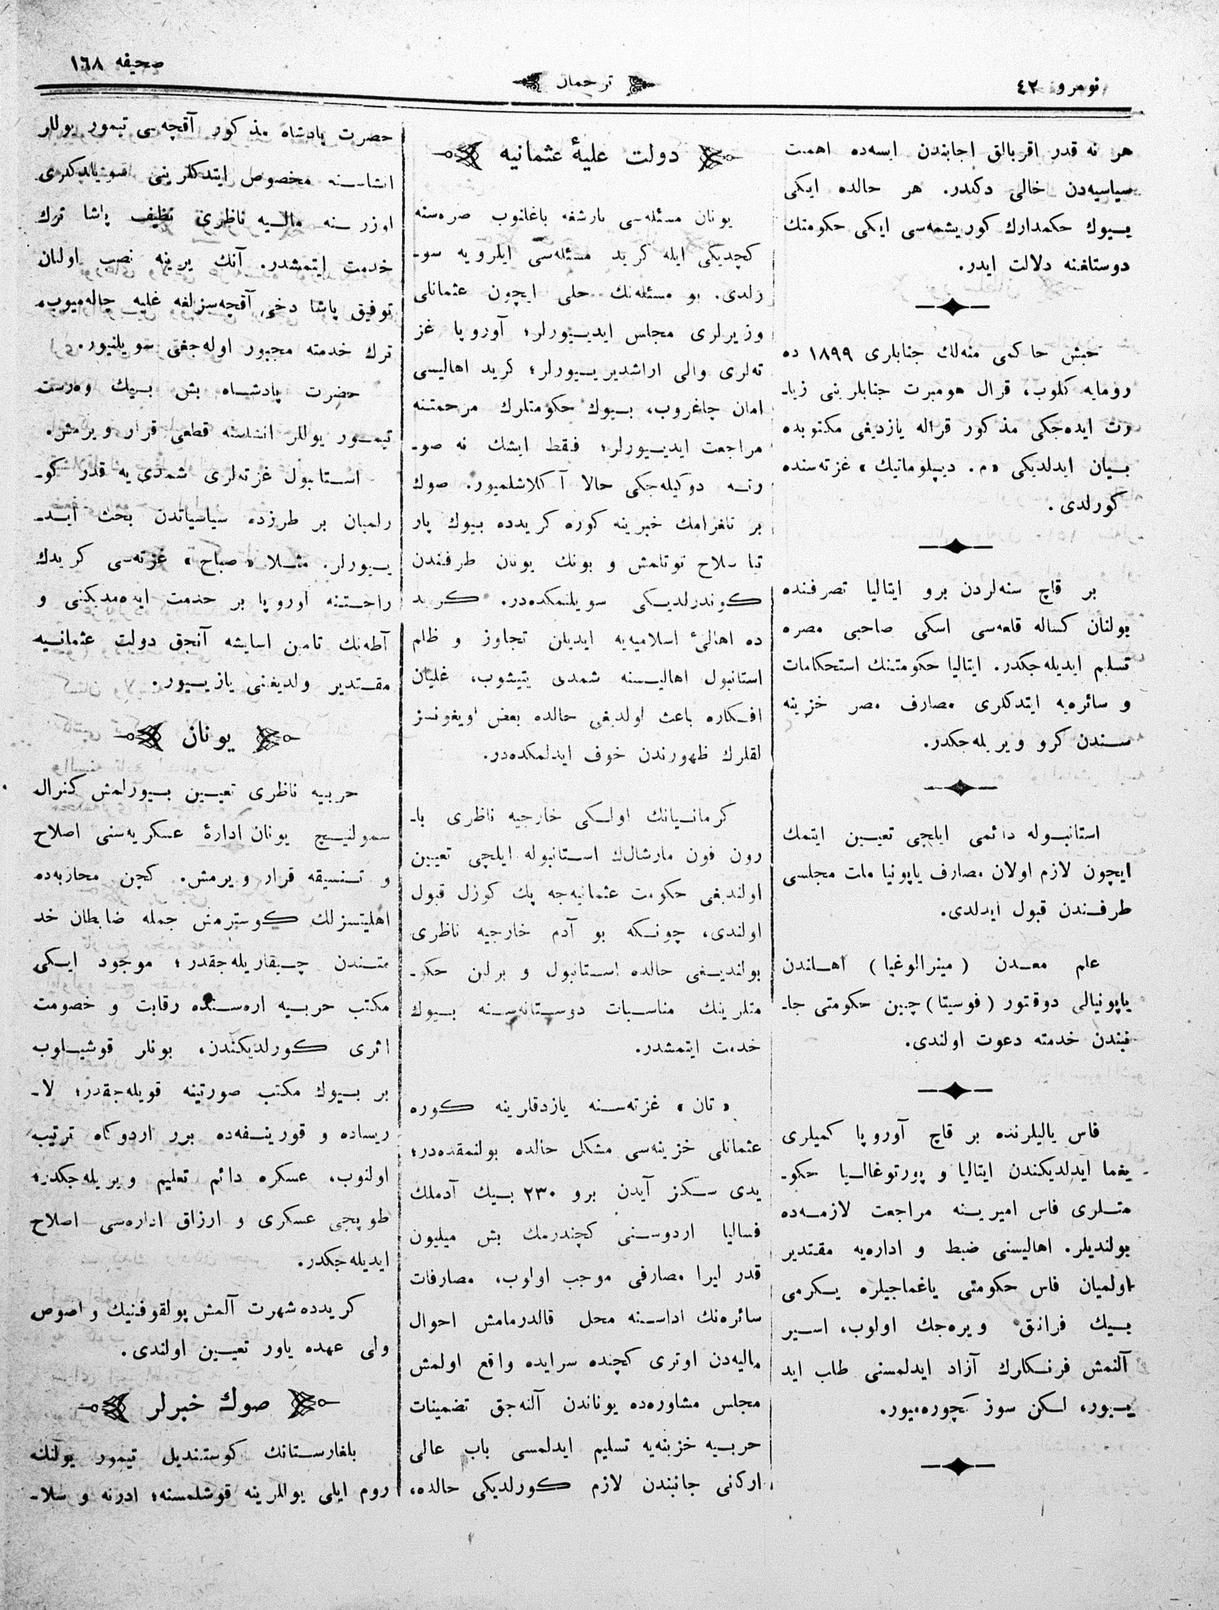 نومرو ٤٢
ترجمان
صحیفه ١٦٨
هر نه قدر اقربالق اجابندن ایسه‌ده اهمیت
سیاسیه‌دن خالی دکلدر. هر حالده ایکی
بیوك حکمدارك کوریشمه‌سی ایکی حکومتك
دوستلغنه دلالت ایدر.
حبش حاکمی منه‌لك جنابلری ١٨٩٩ ده
رومایه کلوب، قرال هومبرت جنابلرینی زیا-
رت ایده‌جکی مذکور قراله یازدیغی مکتوبده
بیان ایدلدیکی «م. دیپلوماتیك» غزته‌سنده
کورلدی.
بر قاچ سنه‌لردن برو ایتالیا تصرفنده
بولنان کساله قلعه‌سی اسکی صاحبی مصره
تسلیم ایدیله‌جکدر. ایتالیا حکومتینك استحکامات
و سائره‌یه ایتدکلری مصارف مصر خزینه
سندن کرو ویریله‌جکدر.
استانبوله دائمی ایلچی تعیین ایتمك
ایچون لازم اولان مصارف یاپونیا ملت مجلسی
طرفندن قبول ایدلدی.
علم معدن (مینرالوغیا) اهلندن
یاپونیالی دوقتور (فوسیتا) چین حکومتی جا-
نبندن خدمته دعوت اولندی.
فاس یالیلرنده بر قاچ آوروپا کمیلری
یغما ایدلدیکندن ایتالیا و پورتوغالیا حکو-
متلری فاس امیرینه مراجعت لازمه‌ده
بولندیلر. اهالیسنی ضبط و اداره‌یه مقتدیر
اولمیان فاس حکومتی یاغماجیلره یکرمی
بیك فرانق ویره‌جك اولوب، اسیر
آلنمش فرنکلرك آزاد ایدلمسنی طلب اید
ییور، لکن سوز کچوره‌میور.
دولت علیۀ عثمانیه
یونان مسئله‌سی بارشغه باغلنوب صره‌سنه
کچدیکی ایله کرید مسئله‌سی ایلرویه سو-
رلدی. بو مسئله‌نك حلی ایچون عثمانلی
وزیرلری مجلس ایدییورلر؛ آوروپا غز
ته‌لری والی اراشدیرییورلر؛ کرید اهالیسی
امان چاغروب، بیوك حکومتلرك مرحمتنه
مراجعت ایدییورلر؛ فقط ایشك نه صو-
رته دوکیله‌جکی حالا آکلاشلمیور. صوك
بر تلغرامك خبرینه کوره کریدده بیوك پار
تیا سلاح توتلمش و بونك یونان طرفندن
کوندرلدیکی سویلنمکده‌در. کرید
ده اهالیٔ اسلامیه‌یه ایدیلن تجاوز و ظلم
استانبول اهالیسنه شمدی یتیشوب، غلیان
افکاره باعث اولدیغی حالده بعض اویغونسز
لقلرك ظهورندن خوف ایدلمکده‌در.
کرمانیانك اولکی خارجیه ناظری با-
رون فون مارشالك استانبوله ایلچی تعیین
اولندیغی حکومت عثمانیه‌جه پك کوزل قبول
اولندی، چونکه بو آدم خارجیه ناظری
بولندیغی حالده استانبول و برلین حکو-
متلرینك مناسبات دوستانه‌سنه بیوك
خدمت ایتمشدر.
«تان» غزته‌سنه یازدقلرینه کوره
عثمانلی خزینه‌سی مشکل حالده بولنمقده‌در؛
یدی سکز آیدن برو ٢٣٠ بیك آدملك
فسالیا اردوسنی کچندرمك بش میلیون
قدر لیرا مصارفی موجب اولوب، مصارفات
سائره‌نك اداسنه محل قالدرمامش احوال
مالیه‌دن اوتری کچنده سرایده واقع اولمش
مجلس مشاوره‌ده یوناندن آلنه‌جق تضمینات
حربیه خزینه‌یه تسلیم ایدلمسی باب عالی
ارکنی جانبندن لازم کورلدیکی حالده،
حضرت پادشاه مذکور آقچه‌سی تیمور یوللر
انشاسنه مخصوص ایتدکلرینی سویلدکلری
اوزرینه مالیه ناظری نظیف پاشا ترك
خدمت ایتمشدر. آنك یرینه نصب اولنان
توفیق پاشا دخی آقچه‌سزلغه غلبه چاله‌میوب
ترك خدمته مجبور اوله‌جغی سویلنیور.
حضرت پادشاه بش بیك ویرست
تیمور یوللر انشاسنه قطعی قرار ویرمش.
استانبول غزته‌لری شمدی‌یه قدر کو-
رلمیان بر طرزده سیاسیاتدن بحث اید-
ییورلر. مثلا «صباح» غزته‌سی کریدك
راحتنه آوروپا بر خدمت ایده‌مدیکنی و
آطه‌نك تأمین اسایشه آنجق دولت عثمانیه
مقتدیر ولدیغنی یازییور.
یونان
حربیه ناظری تعیین بیورلمش کنرال
سمولنیچ یونان ادارۀ عسکریه‌سنی اصلاح
و تنسیقه قرار ویرمش. کچن محاربه‌ده
اهلیتسزلك کوسترمش جمله ضابطان خد
متندن چیقاریله‌جقدر؛ موجود ایکی
مکتب حربیه اره‌سنده رقابت و خصومت
اثری کورلدیکندن، بونلر قوشیلوب
بر بیوك مکتب صورتینه قویله‌جقدر؛ لا-
ریساده و قورینفه‌ده برر اردوکاه ترتیب
اولنوب، عسکره دائم تعلیم ویریله‌جکدر؛
طوپجی عسکری و ارزاق اداره‌سی اصلاح
ایدیله‌جکدر.
کریدده شهرت آلمش پولقوفنیك واصوص
ولی عهده یاور تعیین اولندی.
صوك خبرلر
بلغارستانك کوستندیل تیمور یولنك
روم ایلی یوللرینه قوشلمسنه؛ ادرنه و سلا-